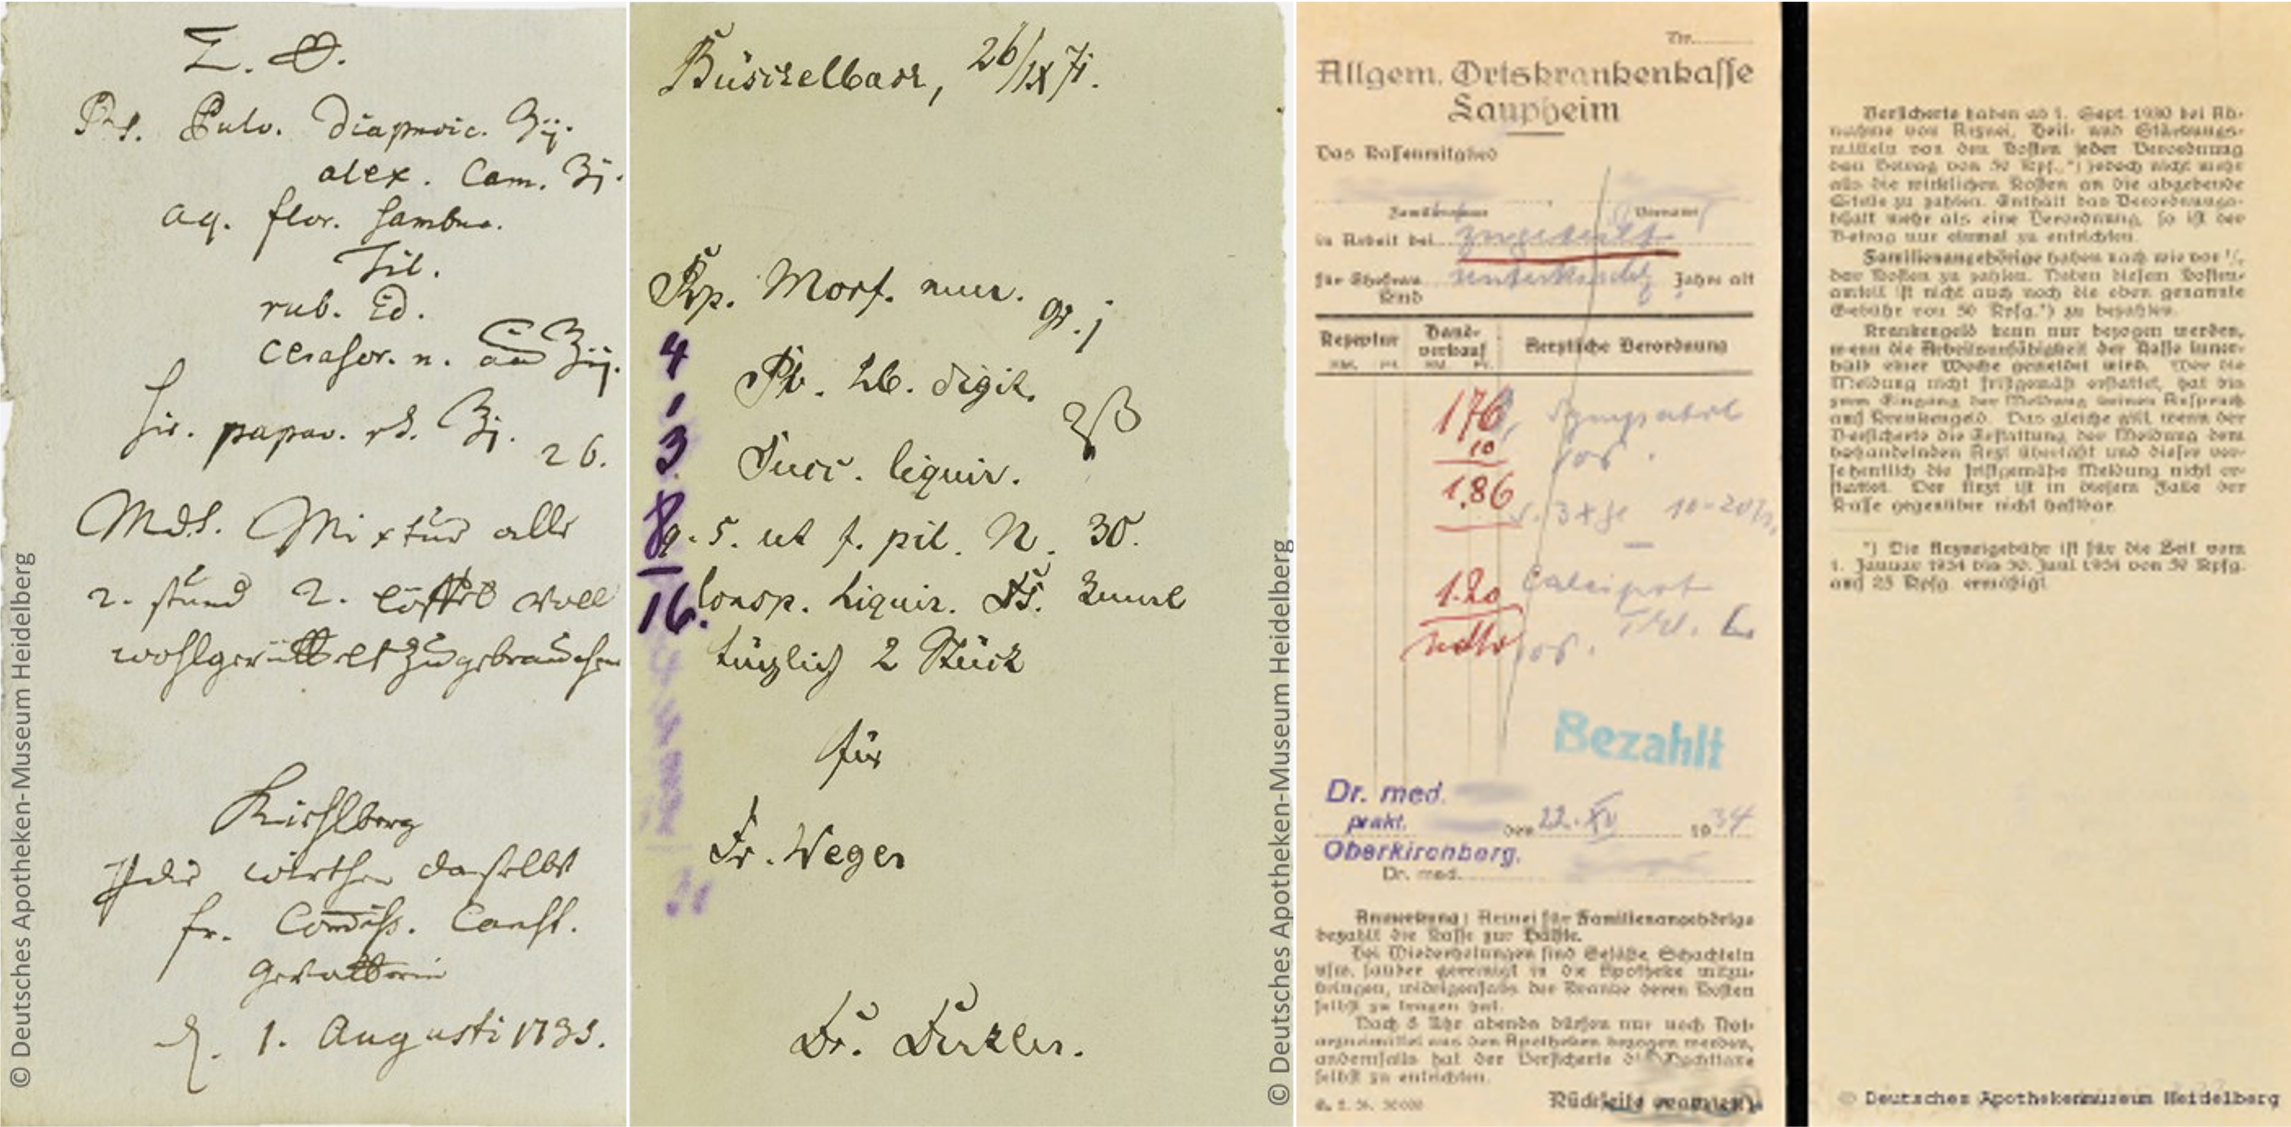 Pulv. Diapnoic. ʒij.
alex. Cam. ʒj.
aq. flor. Sambuc.
Til.
rub. Id.
cerasor. n. aa ʒij.
Sir. papav. rh. ʒj. 26.
MdS. Mixtur alle
2. stund 2. Löffel voll
wohlgerüttelt zu gebrauchen
Kirchberg
wirthen daselbst
fr.
Gevatterin
d. 1. Augusti
© Deutsches Apotheken-Museum Heidelberg
26/IX 71.
Rp. Morf. mur. gr. j
4
Pv. Hb. digit.
1
3
Succ. liquir. ʒß
8 q. s. ut f. pil. N. 30.
16. Consp. Liquir. DS.
täglich 2 Stück
für
Fr. Weger
Dr.
© Deutsches Apotheken-Museum Heidelberg
Nr.
Allgem. Ortskrankenkasse
Laupheim
Das Kassenmitglied
Familienname Vorname
in Arbeit bei zugeteilt
für Ehefrau Jahre alt
Kind
Rezeptur Hand-verkauf Aerztliche Verordnung
RM. Pf. RM. Pf.
176 Sympatol
10 os.
1.86
S. 3 x tgl 10-20 Tr.
1.20 Calcipot
os.
Bezahlt
Dr. med.
prakt. den 22. XII 1934
Oberkirchberg.
Dr. med.
Anmerkung: Arznei für Familienangehörige
bezahlt die Kasse zur Hälfte.
Bei Wiederholungen sind Gefäße, Schachteln
usw. sauber gereinigt in die Apotheke mitzu-
bringen, widrigenfalls der Kranke deren Kosten
selbst zu tragen hat.
Nach 8 Uhr abends dürfen nur noch Not-
arzneimittel aus den Apotheken bezogen werden,
andernfalls hat der Versicherte die Nachttaxe
selbst zu entrichten.
Rückseite
Versicherte haben ab 1. Sept. 1930 bei Ab-
nahme von Arznei, Heil- und Stärkungs-
mitteln von den Kosten jeder Verordnung
den Betrag von 50 Rpf.,*) jedoch nicht mehr
als die wirklichen Kosten an die abgebende
Stelle zu zahlen. Enthält das Verordnungs-
blatt mehr als eine Verordnung, so ist der
Betrag nur einmal zu entrichten.
Familienangehörige haben nach wie vor ½
der Kosten zu zahlen. Neben diesem Kosten-
anteil ist nicht auch noch die oben genannte
Gebühr von 50 Rpfg.*) zu bezahlen.
Krankengeld kann nur bezogen werden,
wenn die Arbeitsunfähigkeit der Kasse inner-
halb einer Woche gemeldet wird. Wer die
Meldung nicht fristgemäß erstattet, hat bis
zum Eingang der Meldung keinen Anspruch
auf Krankengeld. Das gleiche gilt, wenn der
Versicherte die Erstattung der Meldung dem
behandelnden Arzt überläßt und dieser ver-
sehentlich die fristgemäße Meldung nicht er-
stattet. Der Arzt ist in diesem Falle der
Kasse gegenüber nicht haftbar.
*) Die Arzneigebühr ist für die Zeit vom
1. Januar 1934 bis 30. Juni 1934 von 50 Rpfg.
auf 25 Rpfg. ermäßigt.
© Deutsches Apothekenmuseum Heidelberg